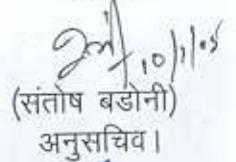 10/1/05
(संतोष बडोनी)
अनुसचिव।